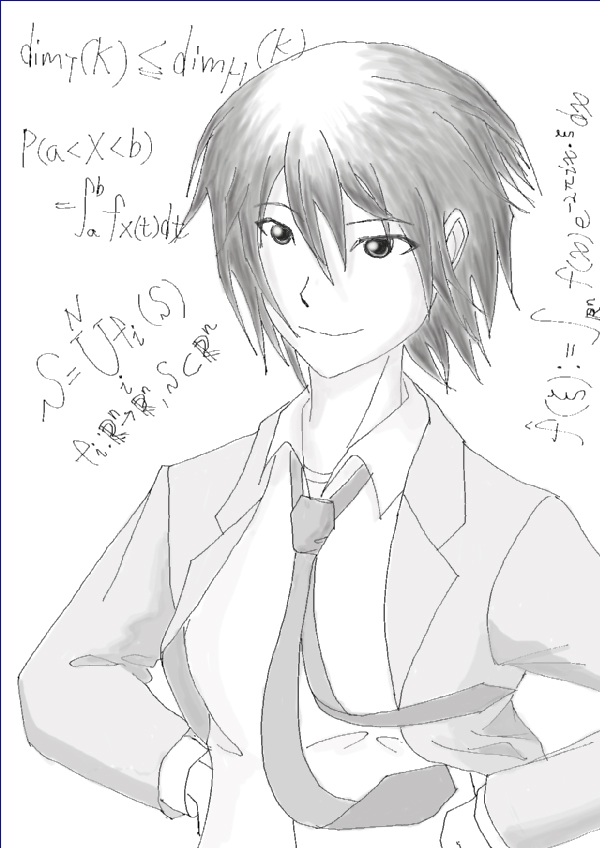 dim_T(K) ≤ dim_H(K)
P(a<X<b)
=∫_a^b f_X(t)dt
S=⋃_i^N f_i(S)
f_i:ℝⁿ→ℝⁿ, S⊂ℝⁿ
f̂(ξ):=∫_ℝⁿ f(x)e^{-2πix·ξ}dx